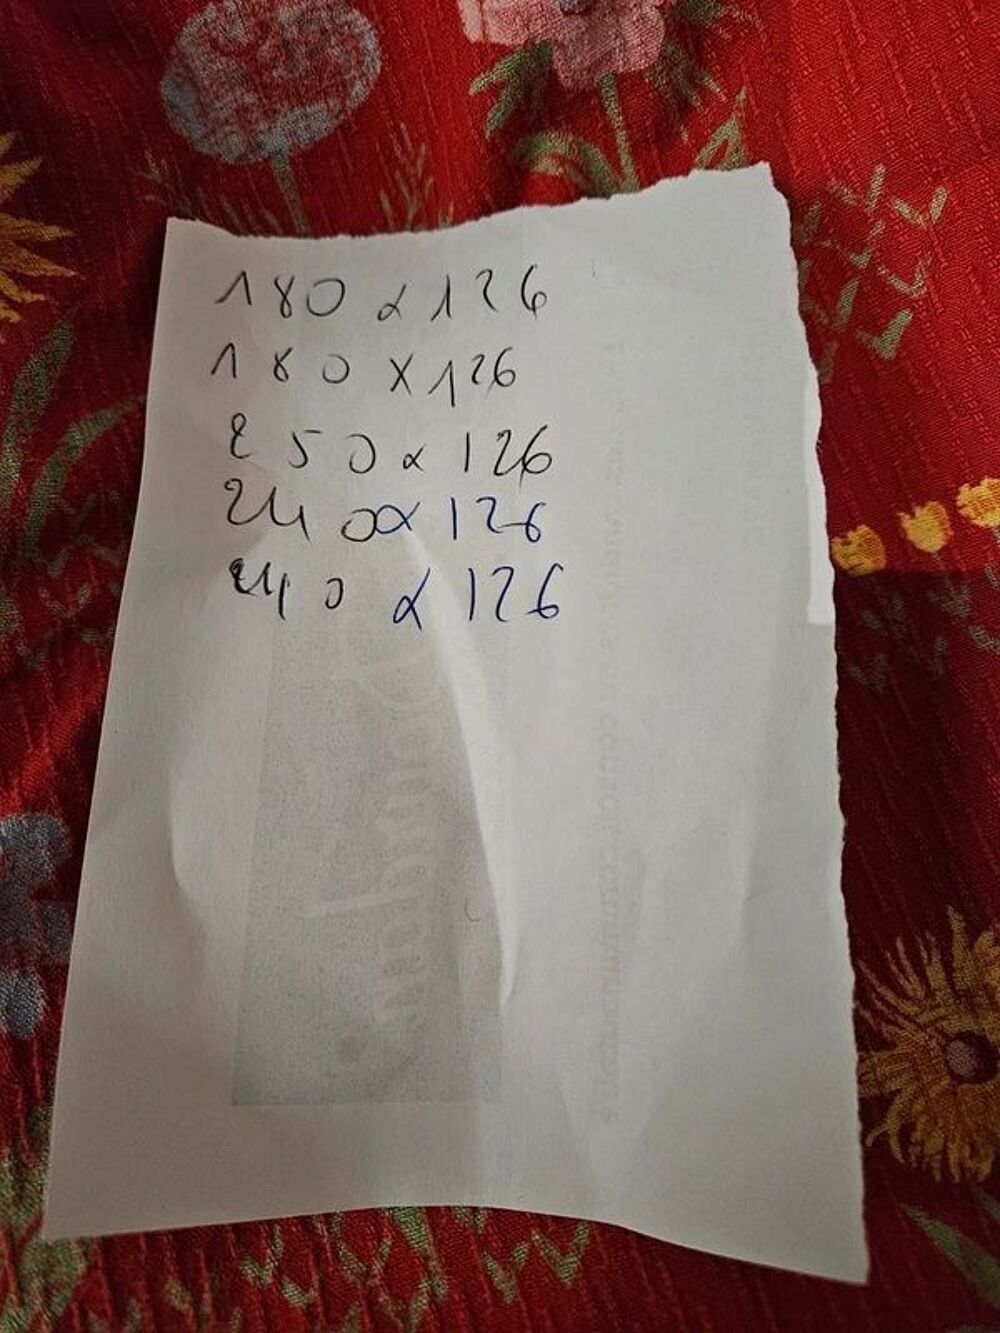 180 x 126
180 x 126
250 x 126
240 x 126
240 x 126